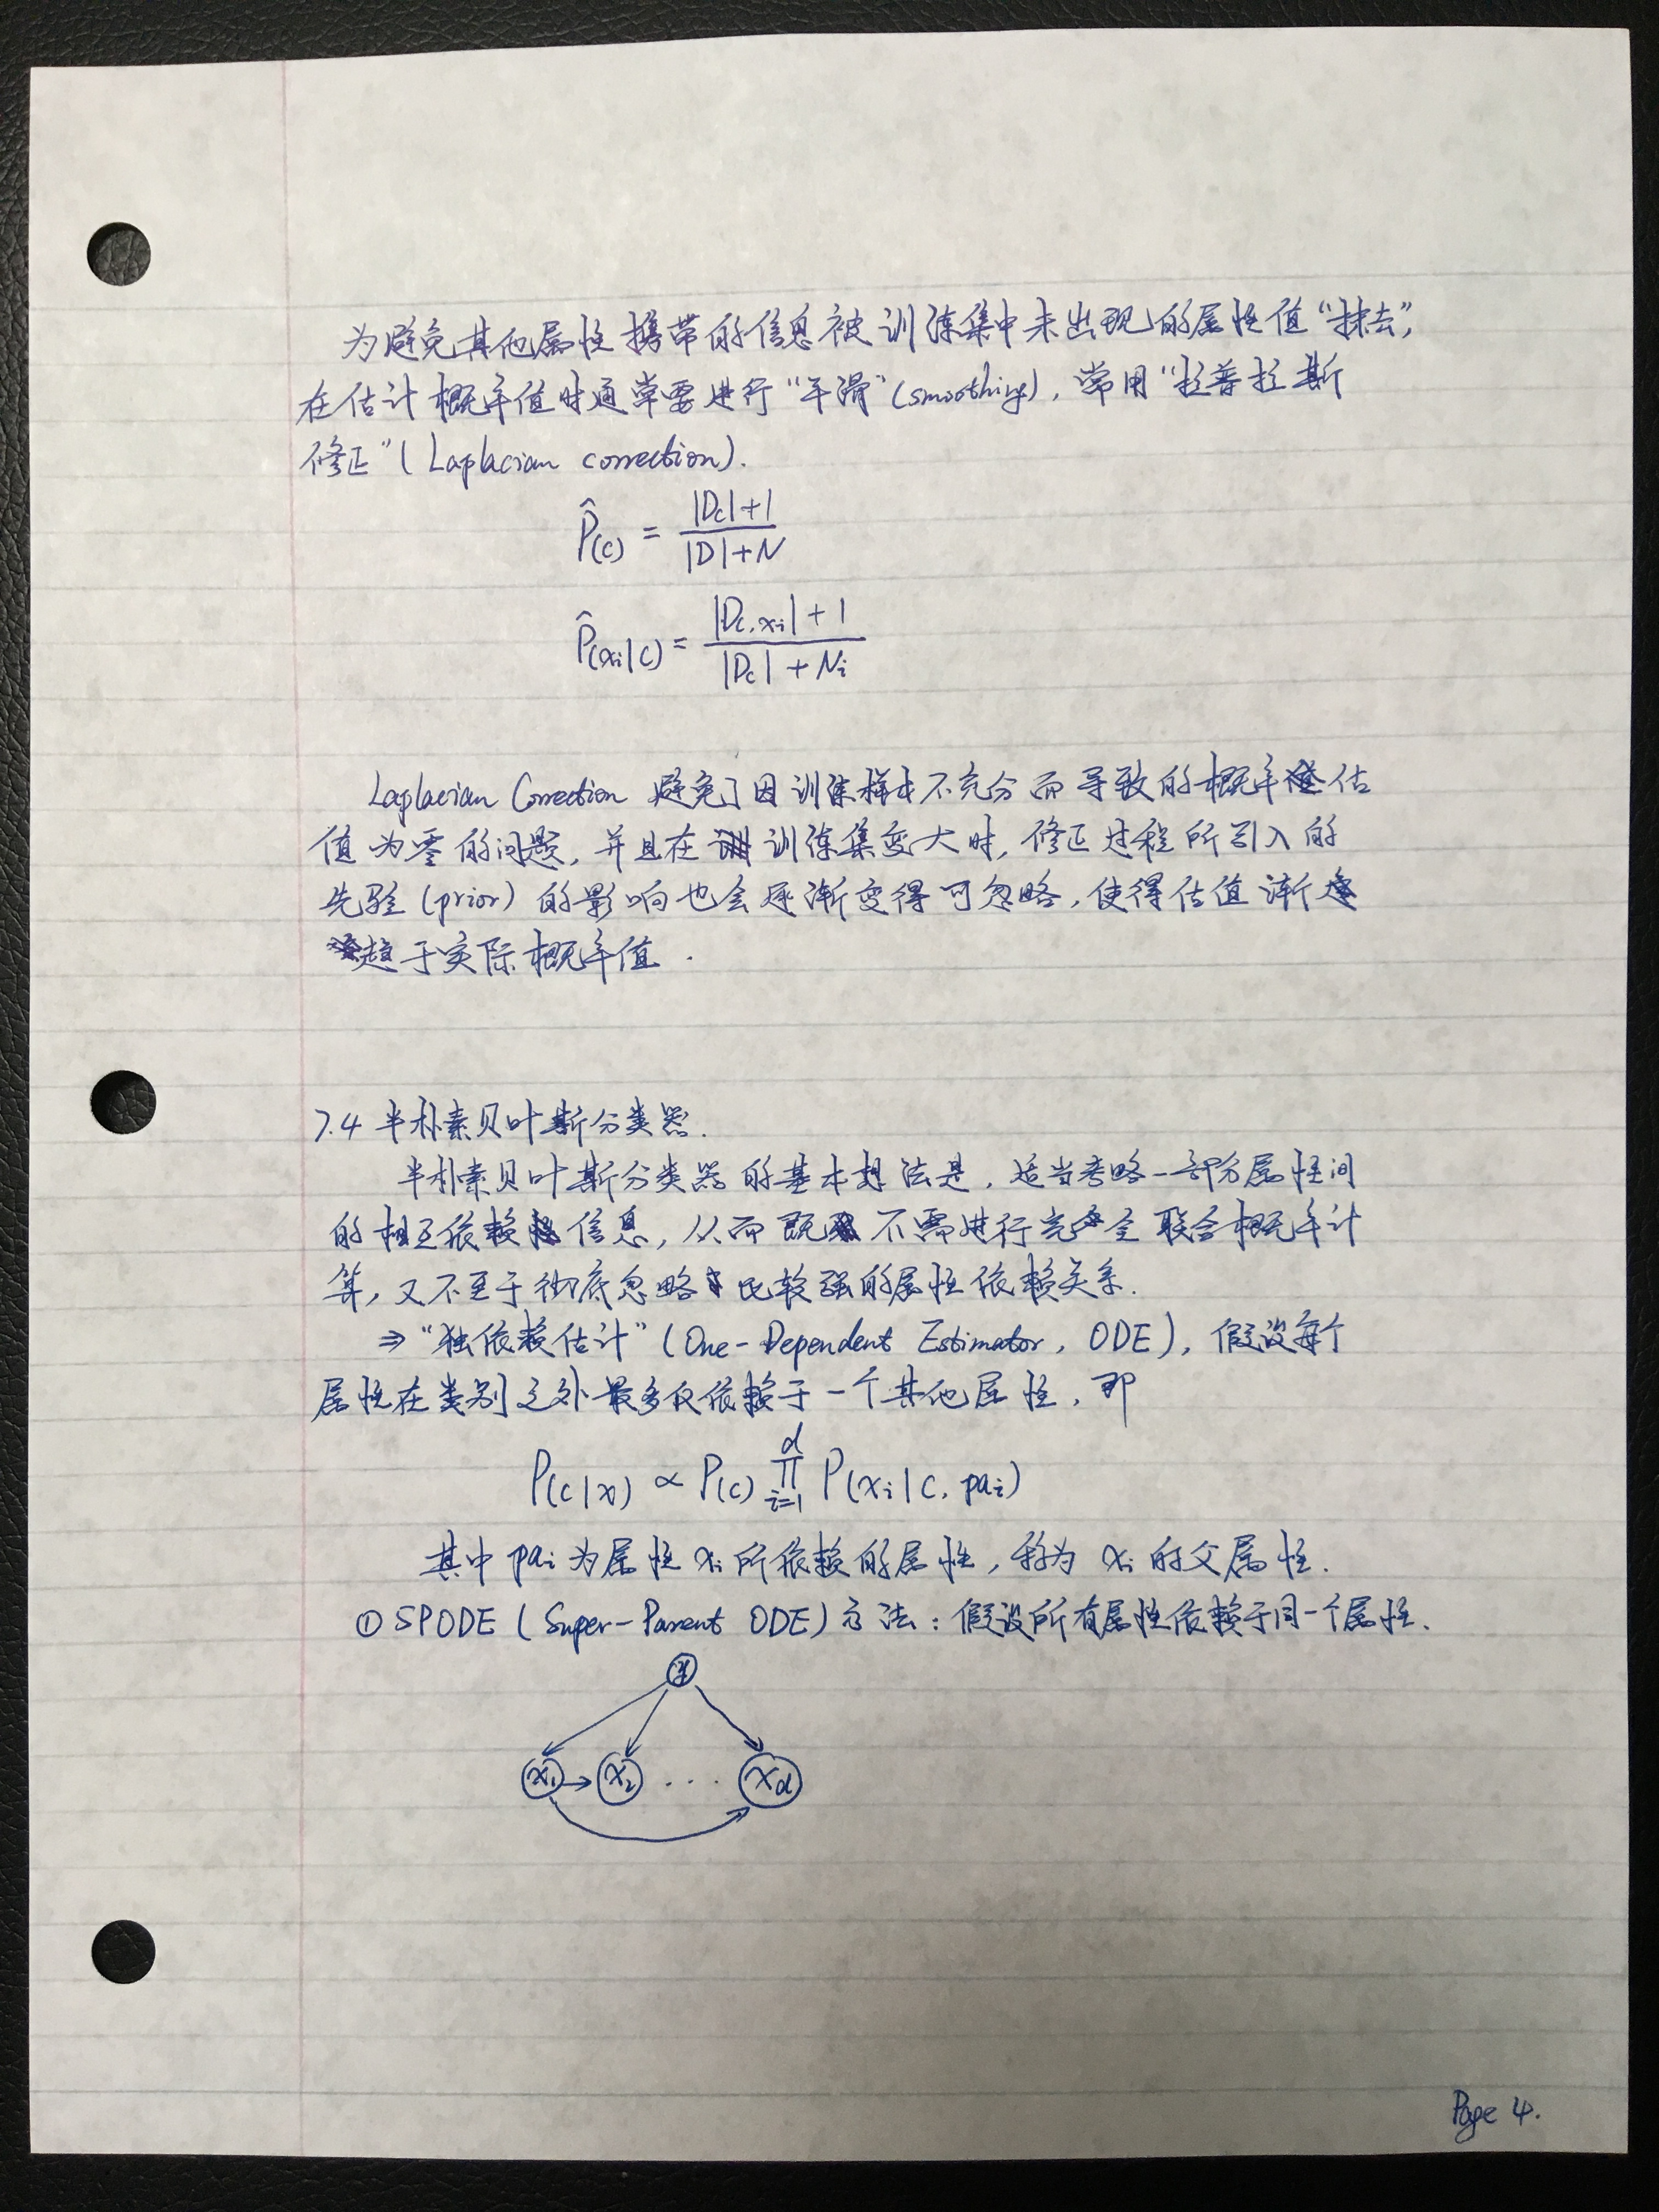 为避免其他属性携带的信息被训练集中未出现的属性值“抹去”,
在估计概率值时通常要进行“平滑”(smoothing),常用“拉普拉斯
修正”(Laplacian correction).
P̂(c) = (|Dc|+1) / (|D|+N)
P̂(xi|c) = (|Dc,xi|+1) / (|Dc|+Ni)
Laplacian Correction 避免了因训练样本不充分而导致的概率估
值为零的问题,并且在训练集变大时,修正过程所引入的
先验(prior)的影响也会逐渐变得可忽略,使得估值渐
趋于实际概率值.
7.4 半朴素贝叶斯分类器.
半朴素贝叶斯分类器的基本想法是,适当考略一部分属性间
的相互依赖信息,从而既不需进行完全联合概率计
算,又不至于彻底忽略比较强的属性依赖关系.
⇒“独依赖估计”(One-Dependent Estimator, ODE),假设每个
属性在类别之外最多仅依赖于一个其他属性,即
P(c|x) ∝ P(c) ∏_{i=1}^{d} P(xi|c, pai)
其中 pai 为属性 xi 所依赖的属性,称为 xi 的父属性.
① SPODE (Super-Parent ODE)方法:假设所有属性依赖于同一个属性.
y
x1 x2 ... xd
Page 4.